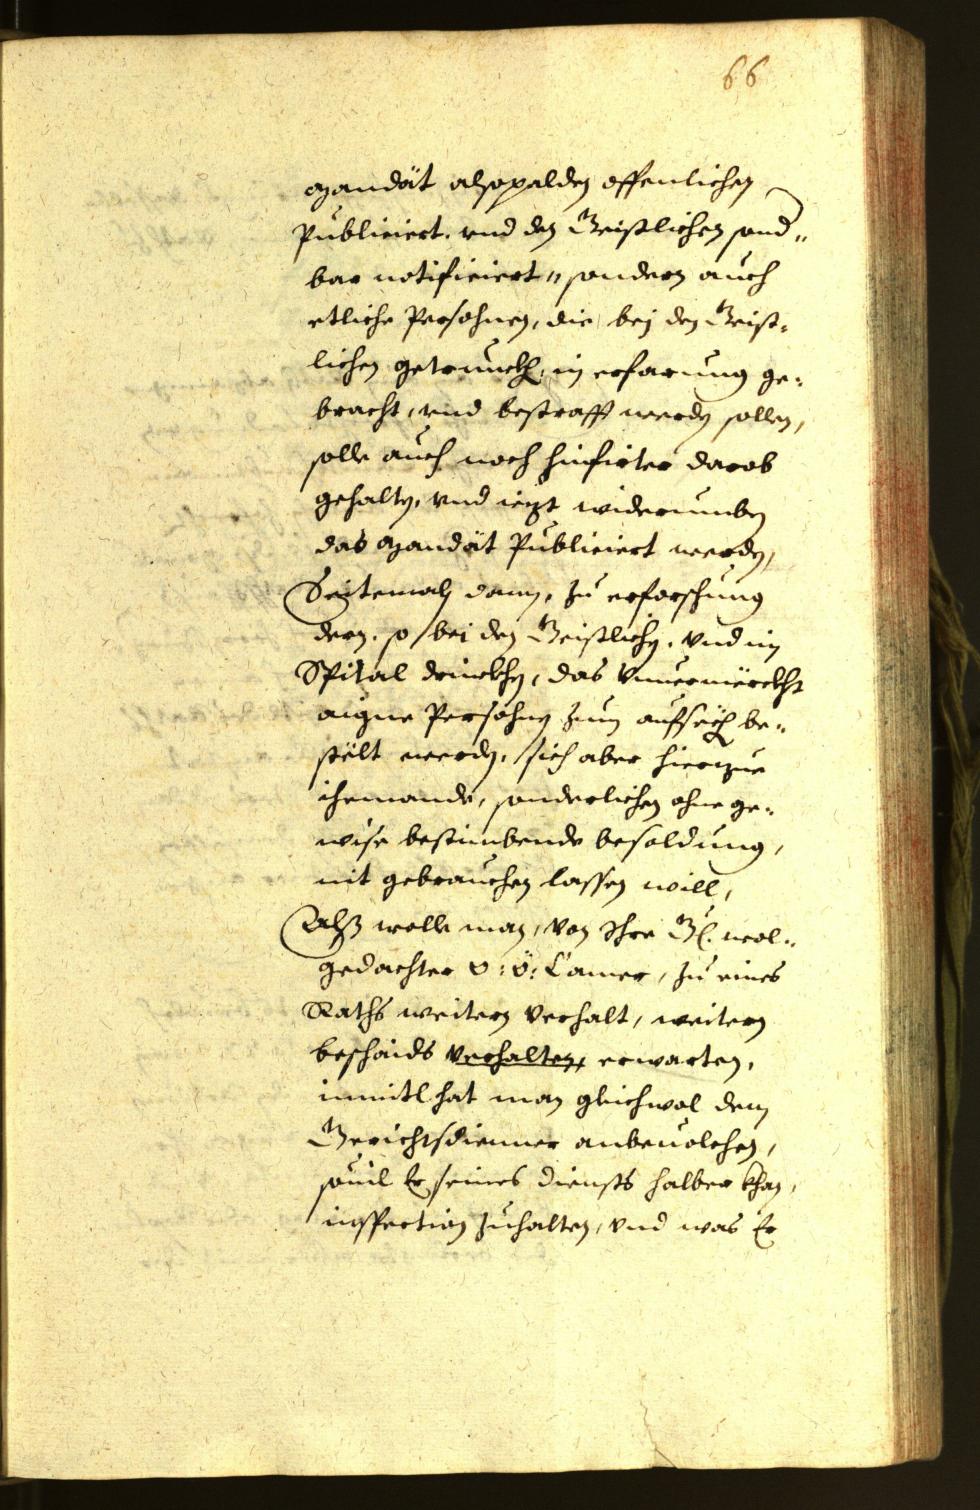 66
Mandät alßpalden offenlichen
Publiciert. vnd den Geistlichen sond„
bar notificiert„ sondern auch
etliche Persohnen, die bej den Geist„
lichen getrunckh, in erfarung ge„
bracht, vnd bestrafft werden sollen,
solle auch noch hinfirter darob
gehalten, vnd iezt widerumben
das Mandät Publiciert werden,
Seitemaln dann, zu erforschung
deren. so bei den Geistlichen, vnd im
Spital drinckhen, das vnuermörckht
aigne Persohnen zum aufsech be„
stölt werden, sich aber hierzue
ihemande, sonderlichen ohne ge„
wise bestimbende besoldung,
nit gebrauchen lassen will,
Alß wolle man, von Ihr Gl. wol„
gedachter O: Ö: Camer, zu eines
Raths weitern verhalt, weitern
beschaids verhalten, erwarten,
inmitl hat man gleichwol dem
Gerichtsdienner anbeuolchen,
souil Er seines diensts halber khan,
inspection zuhalten, vnd was Er